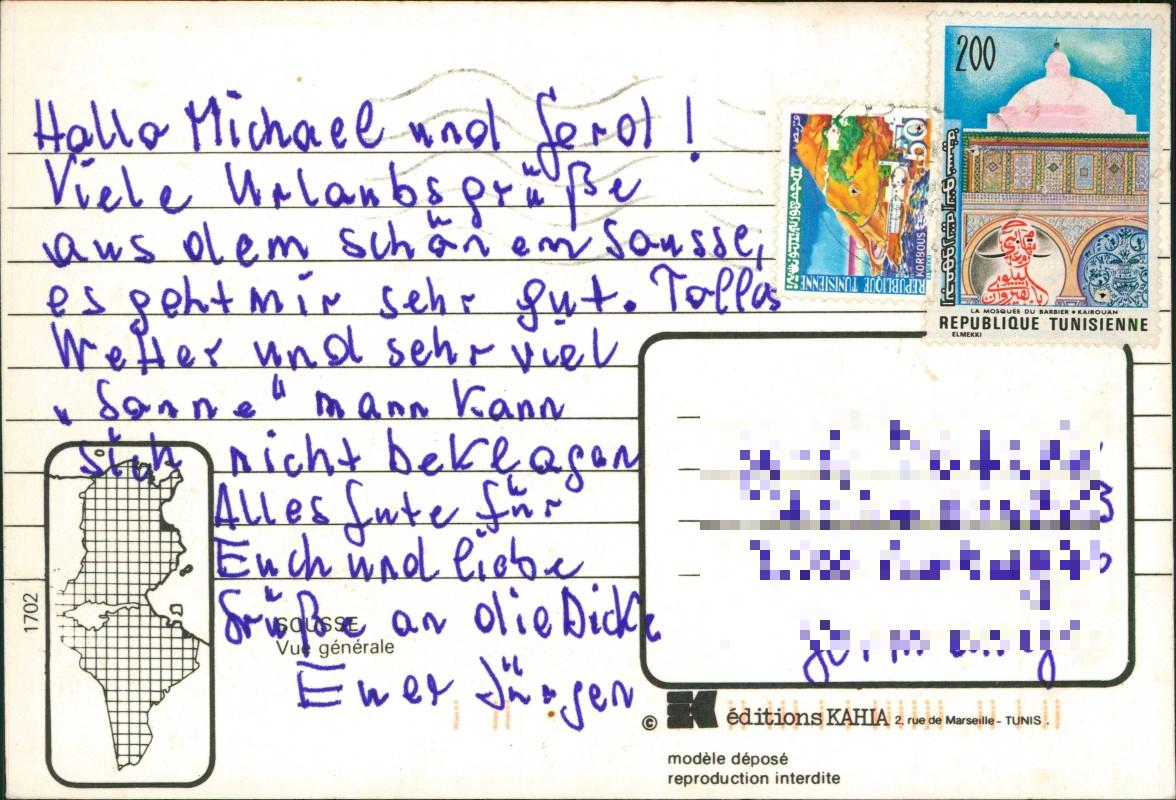 Hallo Michael und Gerd!
Viele Urlaubsgrüße
aus dem schönen Sousse,
es geht mir sehr gut. Tolles
Wetter und sehr viel
„Sonne“ mann kann
sich nicht beklagen
Alles Gute für
Euch und liebe
Grüße an die Dicke
Euer Jürgen
200
LA MOSQUÉE DU BARBIER • KAIROUAN
REPUBLIQUE TUNISIENNE
ELMEKKI
50
KORBOUS
REPUBLIQUE TUNISIENNE
1702
SOUSSE
Vue générale
© éditions KAHIA 2, rue de Marseille - TUNIS.
modèle déposé
reproduction interdite